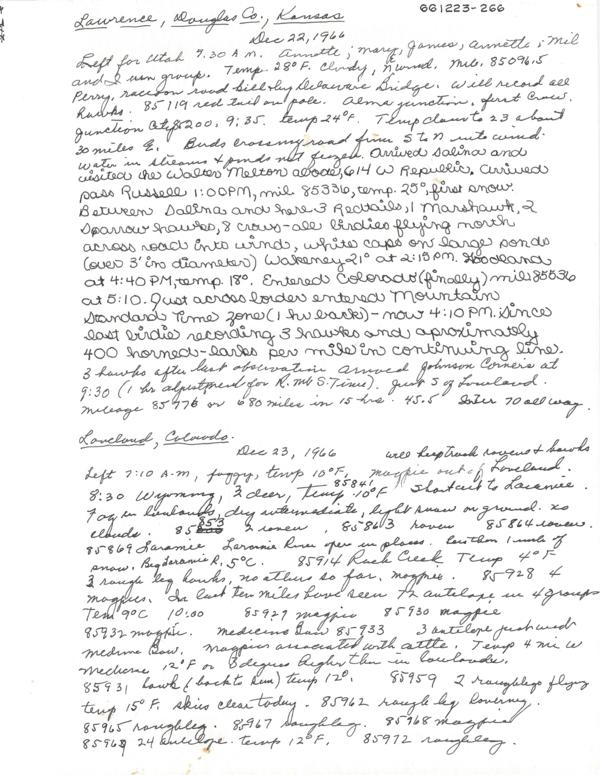 Lawrence, Douglas Co., Kansas
661223-266
Dec 22, 1966
Left for Utah 7:30 A.M. Annette, Mary, James, Annette, Mil
and I in group. Temp. 28°F. Cloudy, N wind. Mil. 85096.5
Perry, raccoon road kill by Delaware Bridge. Will record all
hawks. 85119 red tail on pole. Alma junction, first crow.
Junction City 85200, 9:35. temp 24°F. Temp down to 23 about
30 miles E. Birds crossing road from S to N into wind.
Water in streams & ponds not frozen. Arrived Salina and
visited the Walter Melton abode, 614 W Republic. Arrived
pass Russell 1:00 PM, mil 85336, temp. 25°, first snow.
Between Salina and here 3 Redtails, 1 Marshawk, 2
Sparrow hawks, 8 crows-all birdies flying north
across road into wind, white caps on large ponds
(over 3' in diameter) Wakeney 21° at 2:15 PM. Goodland
at 4:40 PM, temp. 18°. Entered Colorado (finally) mil 85536
at 5:10. Just across border entered Mountain
Standard Time zone (1 hr back) - now 4:10 PM. Since
last birdie recording 3 hawks and aproximatly
400 horned-larks per mile in continuing line.
3 hawks after last observation arrived Johnson Corners at
9:30 (1 hr adjustment for R. Mt S. Time). Just S of Loveland.
Mileage 85776 or 680 miles in 15 hrs. 45.5 Inter 70 all way.
Loveland, Colorado.
Dec 23, 1966 will keep track ravens & hawks
Left 7:10 A.M, foggy, temp 10°F, magpie out of Loveland.
8:30 Wyoming, 2 deer, 85841 Temp 10°F Shortcut to Laramie.
Fog in lowlands, dry intermediate, light snow on ground. no
clouds. 85853 2 raven, 85863 raven 85864 raven.
85869 Laramie Laramie River open in places. less than 1 inch of
snow. Big Laramie R. 5°C. 85914 Rock Creek Temp 4°F
3 rough leg hawks, no others so far, magpie. 85928 4
magpies. In last ten miles have seen 72 antelope in 4 groups
Tem 9°C 10:00 85927 magpie 85930 magpie
85932 magpie. Medicine Bow 85933 3 antelope just west
Medicine Bow. Magpies associated with cattle. Temp 4 mi W
Medicine 12°F or 3 degrees higher than in lowlands.
85931 hawk (back to sun) temp 12°. 85959 2 roughlegs flying
temp 15°F. skies clear today. 85962 rough leg hovering.
85965 roughleg. 85967 roughleg. 85968 magpie
85969 24 antelope. temp 12°F. 85972 roughleg.